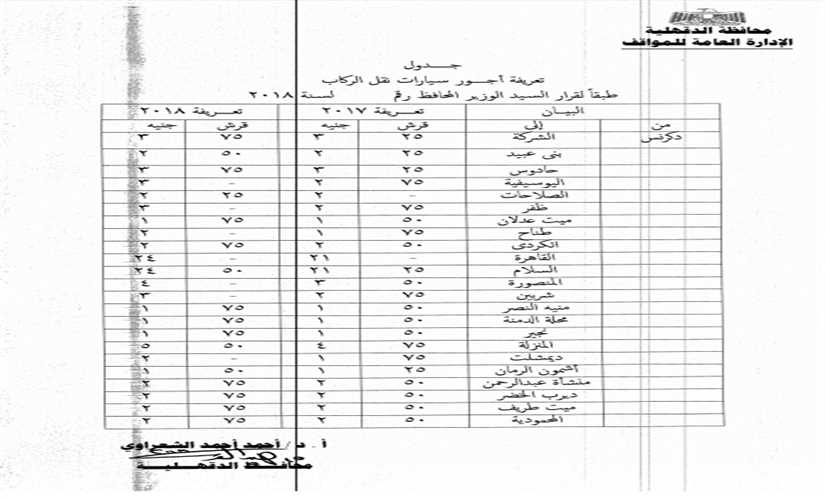 محافظة الدقهلية
الإدارة العامة للمواقف
جـــدول
تعريفة أجـــور سيارات نقل الركاب
طبقاً لقرار السيد الوزير المحافظ رقم لسنة ٢٠١٨
البيـــان تعـــريفة ٢٠١٧ تعـــريفة ٢٠١٨
من إلى قرش جنيه قرش جنيه
دكرنس الشركة ٢٥ ٣ ٧٥ ٣
بنى عبيد ٢٥ ٢ ٥٠ ٢
حادوس ٢٥ ٣ ٧٥ ٣
اليوسيفية ٧٥ ٢ - ٣
الصلاحات - ٢ ٢٥ ٢
ظفر ٧٥ ٢ - ٣
ميت عدلان ٥٠ ١ ٧٥ ١
طناح ٧٥ ١ - ٢
الكردى ٥٠ ٢ ٧٥ ٢
القاهرة - ٢١ - ٢٤
السلام ٢٥ ٢١ ٥٠ ٢٤
المنصورة ٥٠ ٣ - ٤
شربين ٧٥ ٢ - ٣
منيه النصر ٥٠ ١ ٧٥ ١
محلة الدمنة ٥٠ ١ ٧٥ ١
نجير ٥٠ ١ ٧٥ ١
المنزلة ٧٥ ٤ ٥٠ ٥
ديمشلت ٧٥ ١ - ٢
أشمون الرمان ٢٥ ١ ٥٠ ١
منشأة عبدالرحمن ٥٠ ٢ ٧٥ ٢
ديرب الخضر ٥٠ ٢ ٧٥ ٢
ميت طريف ٥٠ ٢ ٧٥ ٢
المحمودية ٥٠ ٢ ٧٥ ٢
أ . د / أحمد أحمد الشعراوي
محافـــظ الدقهلـــية